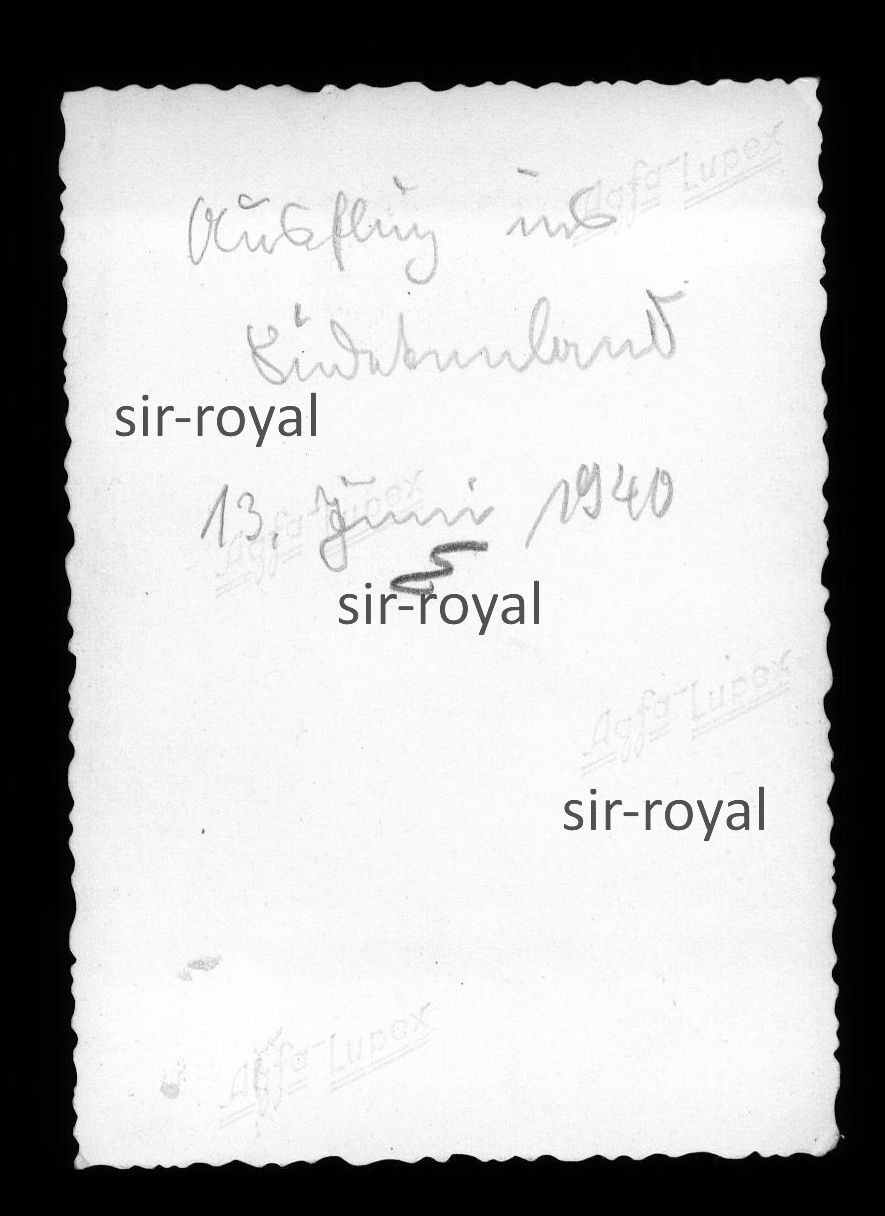 Agfa-Lupex
Ausflug ins
Sudetenland
sir-royal
13. Juni 1940
Agfa-Lupex
sir-royal
Agfa-Lupex
sir-royal
Agfa-Lupex